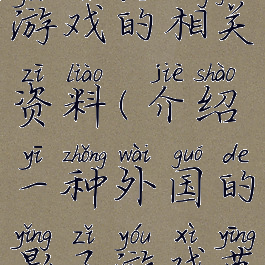 游戏的相关
zī liào jiè shào
资料(介绍
yī zhǒng wài guó de
一种外国的
yǐng zǐ yóu xì yīng
影子游戏英